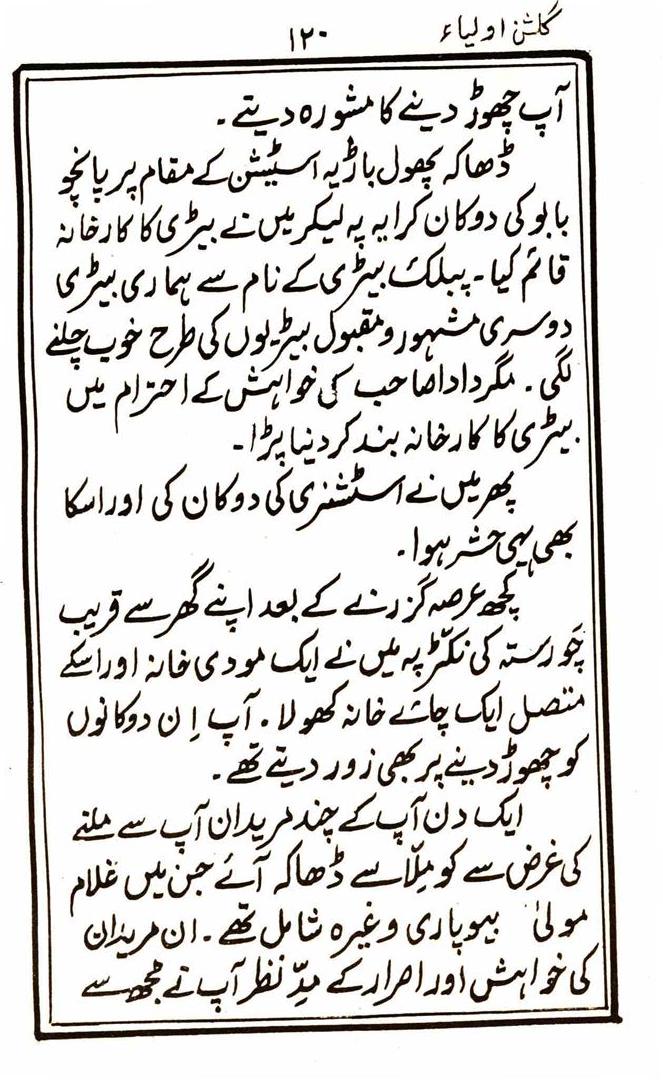 گلشن اولیاء
۱۲۰
آپ چھوڑ دینے کا مشورہ دیتے۔
ڈھاکہ پھول باڑیہ اسٹیشن کے مقام پر پانچو
بابو کی دوکان کرایہ پہ لیکر میں نے بیڑی کا کارخانہ
قائم کیا۔ پبلک بیڑی کے نام سے ہماری بیڑی
دوسری مشہور و مقبول بیڑیوں کی طرح خوب چلنے
لگی۔ مگر دادا صاحب کی خواہش کے احترام میں
بیڑی کا کارخانہ بند کر دینا پڑا۔
پھر میں نے اسٹشنری کی دوکان کی اور اسکا
بھی یہی حشر ہوا۔
کچھ عرصہ گزرنے کے بعد اپنے گھر سے قریب
چورستہ کی نکڑ پہ میں نے ایک مودی خانہ اور اسکے
متصل ایک چائے خانہ کھولا۔ آپ اِن دوکانوں
کو چھوڑ دینے پر بھی زور دیتے تھے۔
ایک دن آپ کے چند مریدان آپ سے ملنے
کی غرض سے کومِلّا سے ڈھاکہ آئے جن میں غلام
مولیٰ بیوپاری وغیرہ شامل تھے۔ ان مریدان
کی خواہش اور اصرار کے مدِّ نظر آپ نے مجھ سے